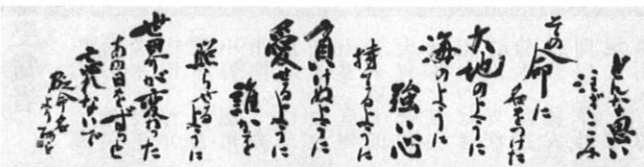 どんな思い
注ぎこみ
その命に
名をつけた
大地のように
海のように
強い心
持てるように
負けぬように
愛せるように
誰かを
照らせるように
世界が変わった
あの日をずっと
忘れないで
命名
より